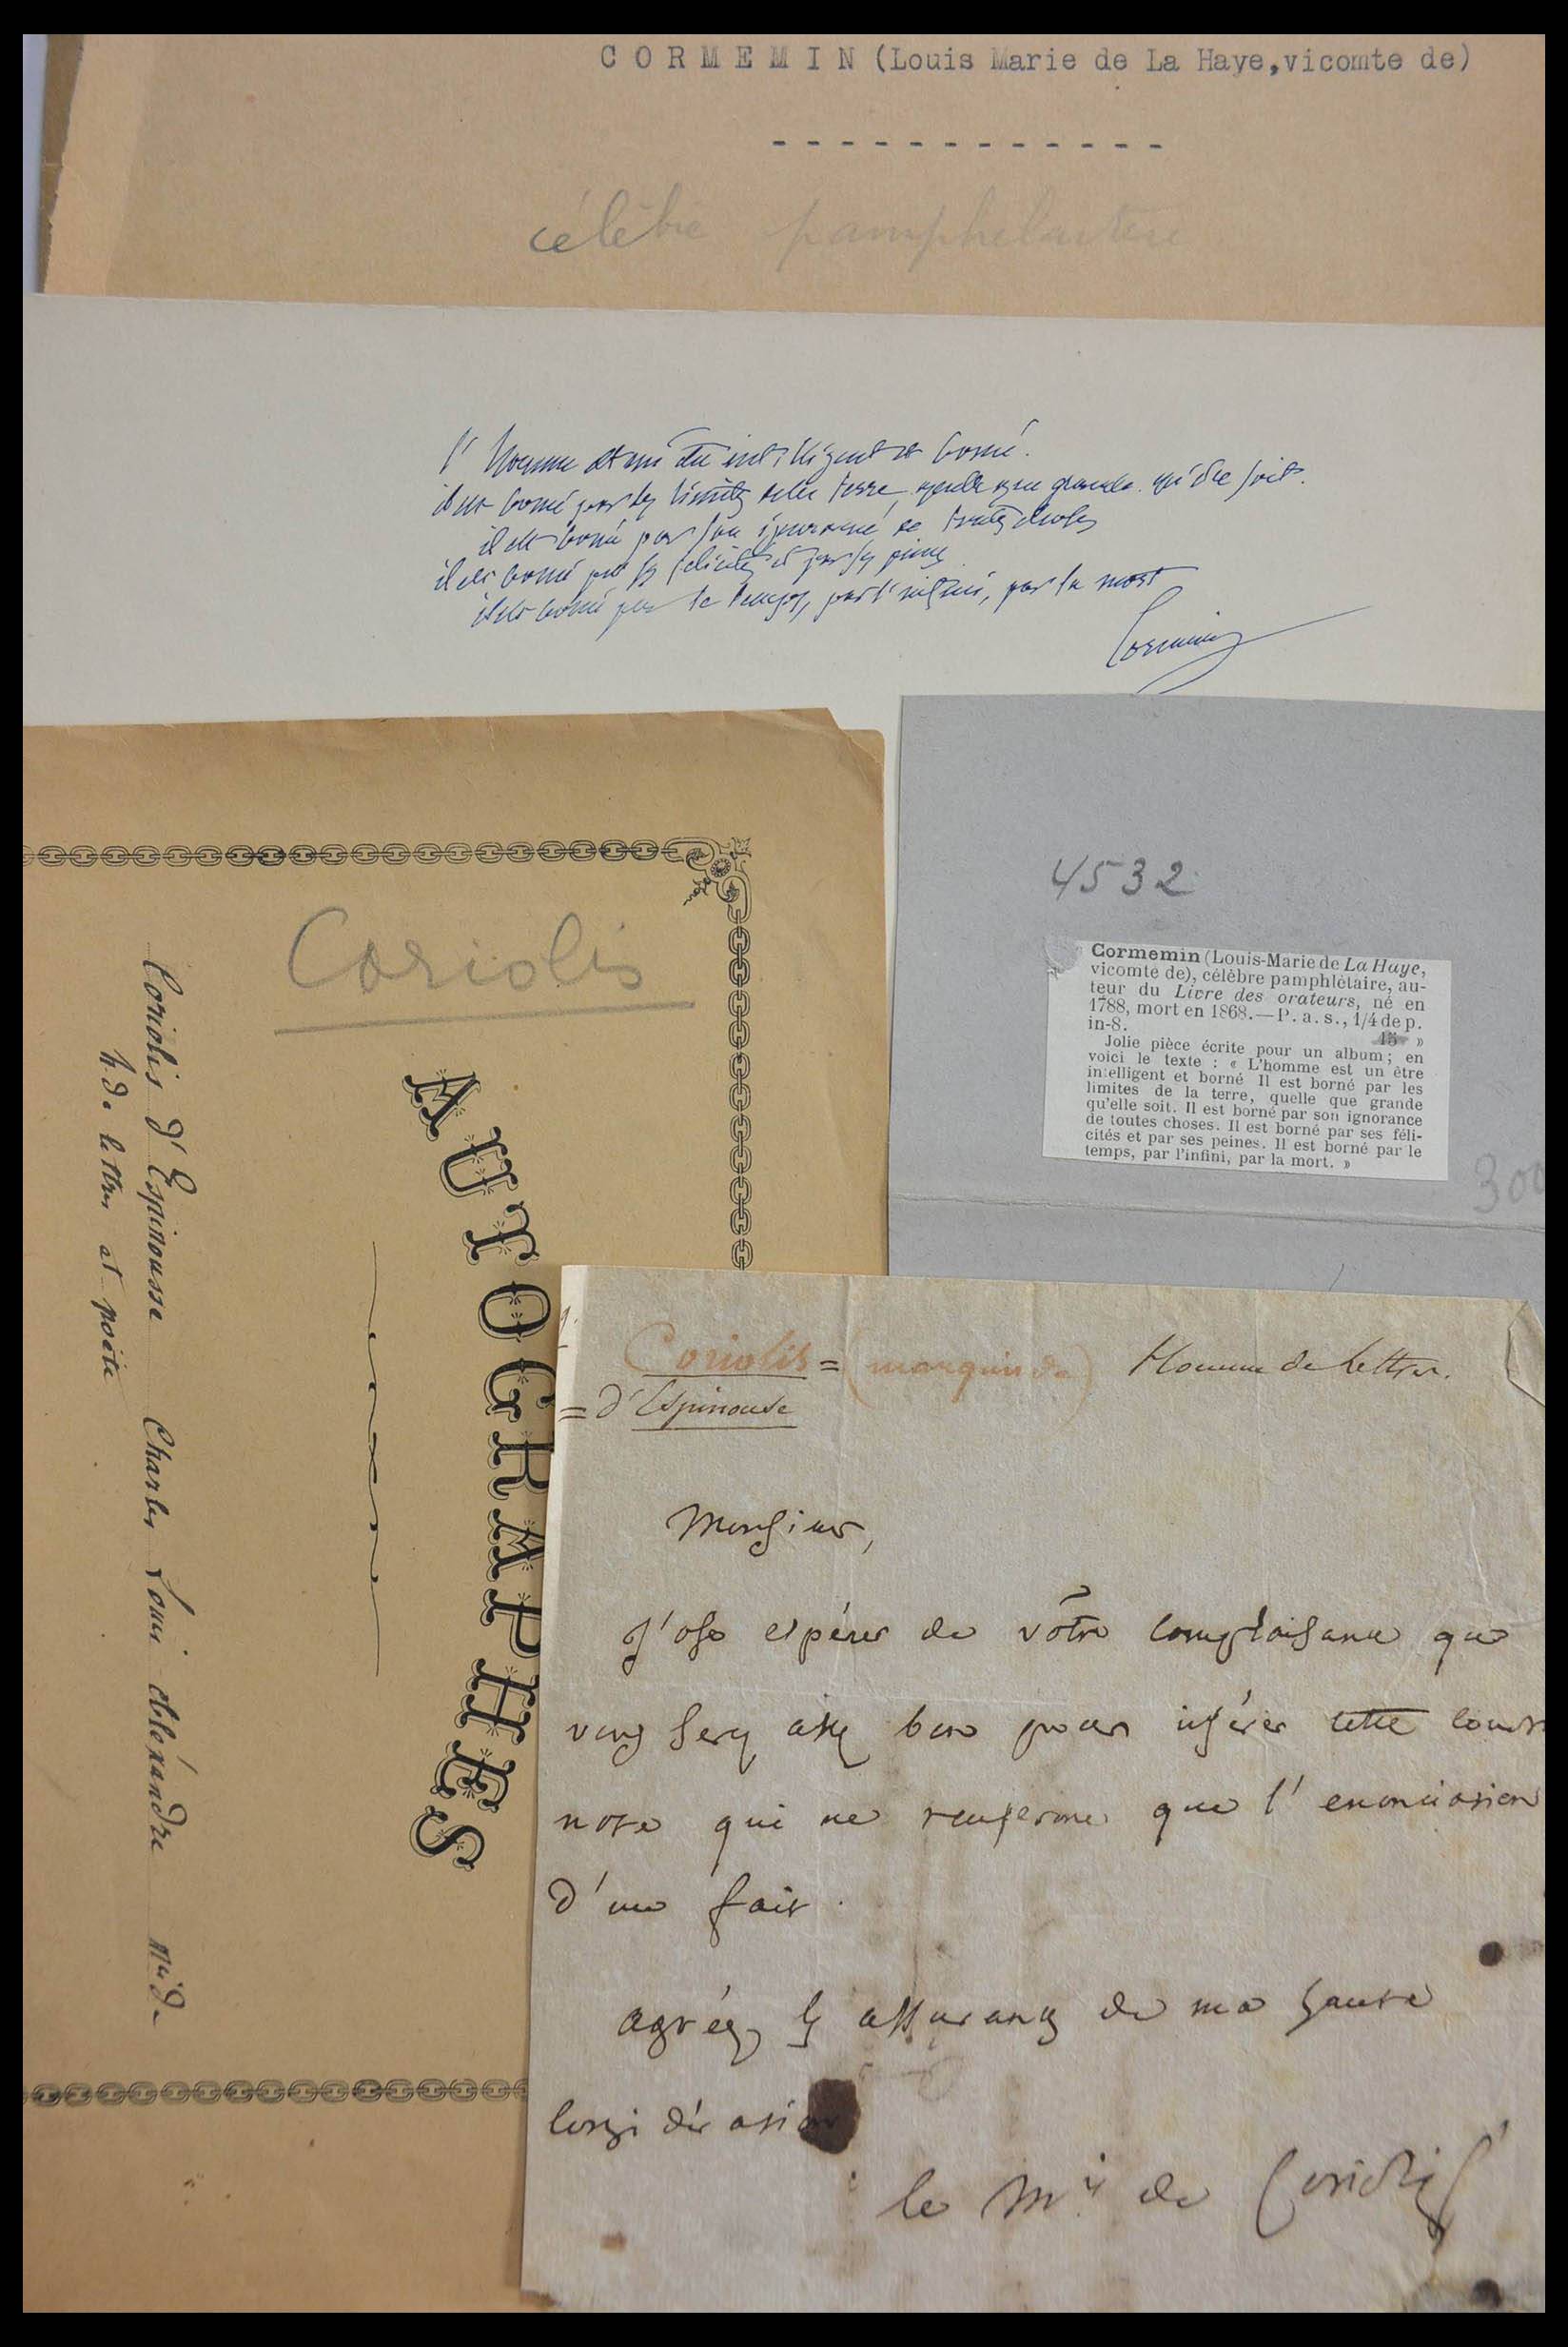 CORMEMIN (Louis Marie de La Haye, vicomte de)
- - - - - - - - - - - -
célèbre
l'homme est un être intelligent et borné.
il est borné par les limites de la terre, quelle que grande qu'elle soit.
il est borné par son ignorance de toutes choses
il est borné par ses félicités et par ses peines
il est borné par le temps, par l'infini, par la mort
Cormenin
4532
Cormemin (Louis-Marie de La Haye,
vicomte de), célèbre pamphlétaire, au-
teur du Livre des orateurs, né en
1788, mort en 1868.—P. a. s., 1/4 de p.
in-8. 15 »
Jolie pièce écrite pour un album; en
voici le texte : « L'homme est un être
intelligent et borné Il est borné par les
limites de la terre, quelle que grande
qu'elle soit. Il est borné par son ignorance
de toutes choses. Il est borné par ses féli-
cités et par ses peines. Il est borné par le
temps, par l'infini, par la mort. »
300
Coriolis
AUTOGRAPHES
Coriolis d'Espinousse Charles Louis Alexandre Mis de
h. de lettres et poète
Coriolis = (marquis de) Homme de Lettres.
= d'Espinouse
Monsieur,
J'ose espérer de vôtre complaisance que
vous serez assez bon pour insérer cette courte
note qui ne renferme que l'enonciation
d'un fait.
agréez les assurances de ma haute
considération
le Mis de Coriolis